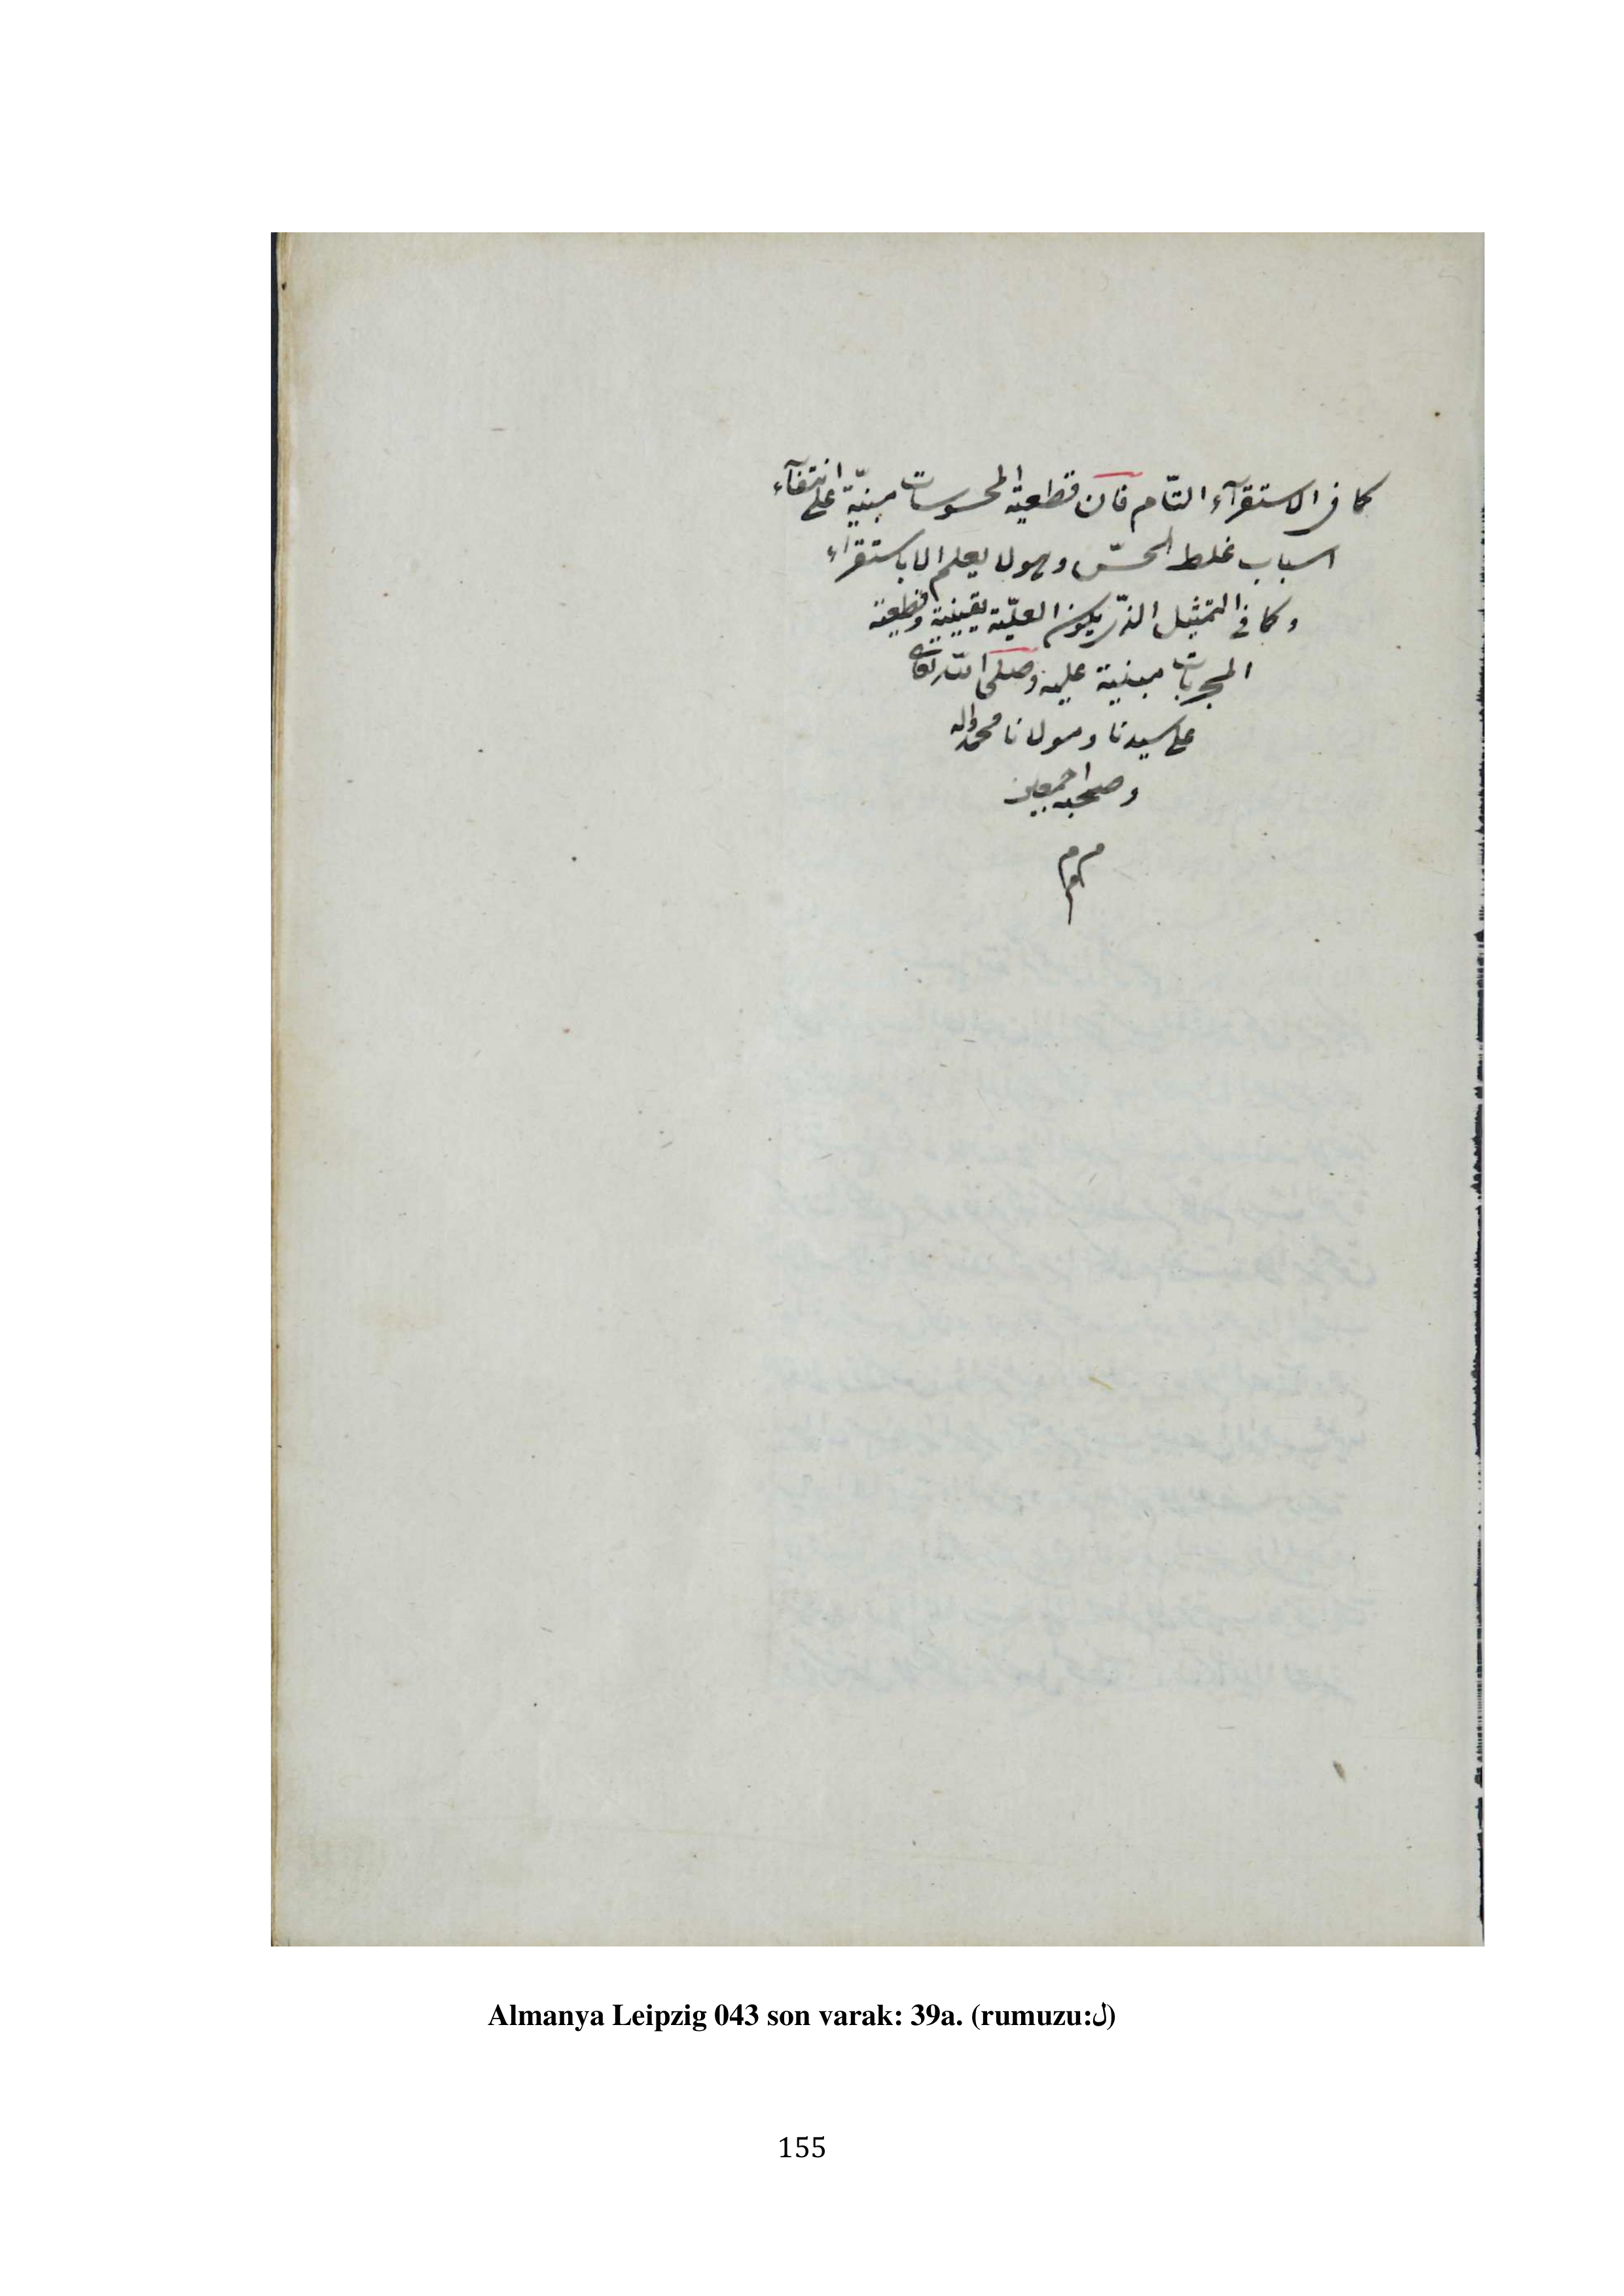 كما فى الاستقرآء التّام فان قطعية المحسوسات مبنيّة على انتفآء
اسباب غلط الحسّ وهو لا يعلم الا باستقراء
وكما فى التمثيل الذى يكون العلّية يقينية وقطعية
المجربات مبنية عليه وصلى الله تعالى
على سيدنا ومولانا محمد واله
وصحبه اجمعين
Almanya Leipzig 043 son varak: 39a. (rumuzu:ل)
155